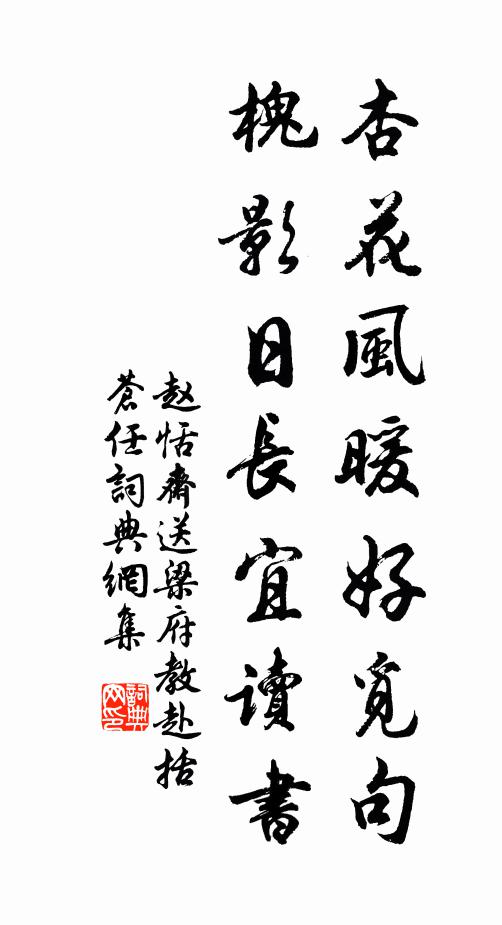 杏花風暖好覓句
槐影日長宜讀書
赵恬齋送梁府教赴括
蒼任詞典網集
詞典
网印